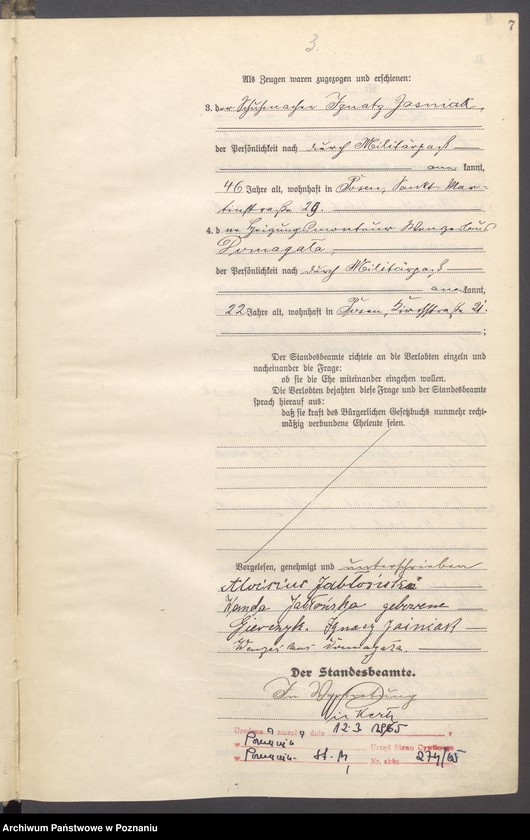 7
3.
Als Zeugen waren zugezogen und erschienen:
3. der Schuhmacher Ignatz Jasniak,
der Persönlichkeit nach durch Militärpaß
aner kannt,
46 Jahre alt, wohnhaft in Posen, Sankt Mar-
tinstraße 29.
4. der Heizungsmonteur Wenzeslaus
Domagała,
der Persönlichkeit nach durch Militärpaß
aner kannt,
22 Jahre alt, wohnhaft in Posen, 21.
;
Der Standesbeamte richtete an die Verlobten einzeln und
nacheinander die Frage:
ob sie die Ehe miteinander eingehen wollen.
Die Verlobten bejahten diese Frage und der Standesbeamte
sprach hierauf aus:
daß sie kraft des Bürgerlichen Gesetzbuchs nunmehr recht-
mäßig verbundene Eheleute seien.
Vorgelesen, genehmigt und unterschrieben
Aloisius Jabłoński
Wanda Jabłońska geborene
Gierczyk. Ignacy Jaśniak
Wenzeslaus Domagała.
Der Standesbeamte.
In Vertretung
dnia 12.3 1965 r
w Poznaniu Urząd Stanu Cywilnego
w Poznaniu - St. M Nr. aktu 274/65
Archiwum Państwowe w Poznaniu